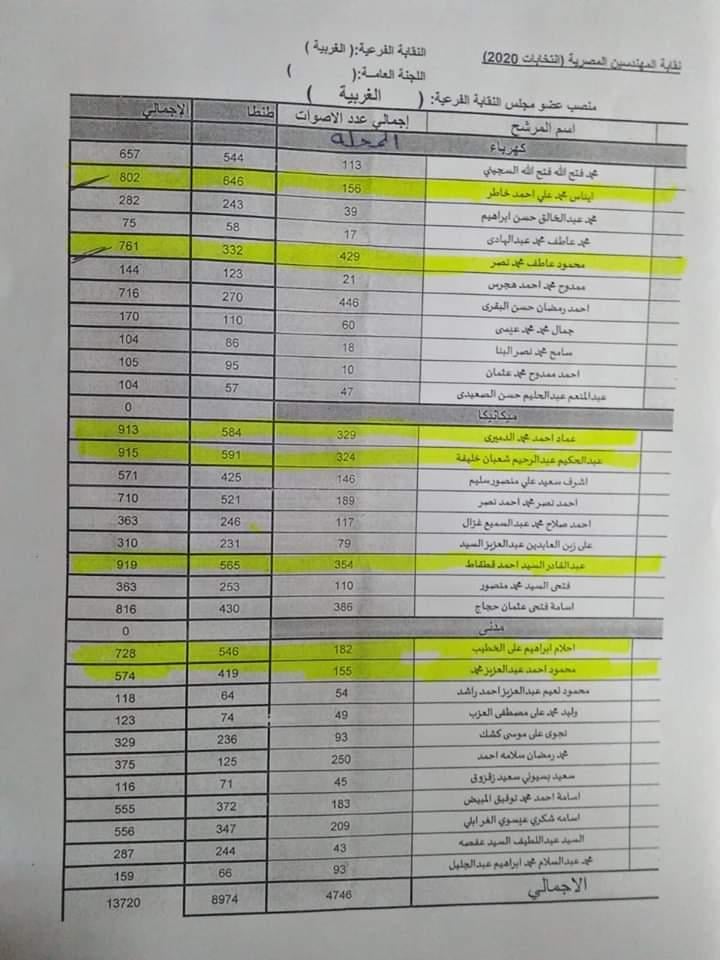 نقابة المهندسين المصرية (انتخابات 2020) النقابة الفرعية: ( الغربية )
اللجنة العامة: ( )
منصب عضو مجلس النقابة الفرعية: ( الغربية )
اسم المرشح إجمالي عدد الاصوات طنطا الإجمالي
كهرباء المحله
محمد فتح الله فتح الله السجيني 113 544 657
ايناس محمد علي احمد خاطر 156 646 802
محمد عبدالخالق حسن ابراهيم 39 243 282
محمد عاطف محمد عبدالهادى 17 58 75
محمود عاطف محمد نصر 429 332 761
ممدوح محمد احمد هجرس 21 123 144
احمد رمضان حسن البقرى 446 270 716
جمال محمد محمد عيسى 60 110 170
سامح محمد نصر البنا 18 86 104
احمد ممدوح محمد عثمان 10 95 105
عبدالمنعم عبدالحليم حسن الصعيدى 47 57 104
ميكانيكا 0
عماد احمد محمد الدميرى 329 584 913
عبدالحكيم عبدالرحيم شعبان خليفة 324 591 915
اشرف سعيد علي منصور سليم 146 425 571
احمد نصر محمد احمد نصر 189 521 710
احمد صلاح محمد عبدالسميع غزال 117 246 363
على زين العابدين عبدالعزيز السيد 79 231 310
عبدالقادر السيد احمد قطقاط 354 565 919
فتحى السيد محمد منصور 110 253 363
اسامة فتحى عثمان حجاج 386 430 816
مدنى 0
احلام ابراهيم على الخطيب 182 546 728
محمود احمد عبدالعزيز محمد 155 419 574
محمود نعيم عبدالعزيز احمد راشد 54 64 118
وليد محمد على مصطفى العزب 49 74 123
نجوى على موسى كشك 93 236 329
محمد رمضان سلامه احمد 250 125 375
سعيد بسيوني سعيد زقزوق 45 71 116
اسامة احمد محمد توفيق المبيض 183 372 555
اسامه شكري عيسوي الغرابلي 209 347 556
السيد عبداللطيف السيد عفصه 43 244 287
محمد عبدالسلام محمد ابراهيم عبدالجليل 93 66 159
الاجمالي 4746 8974 13720